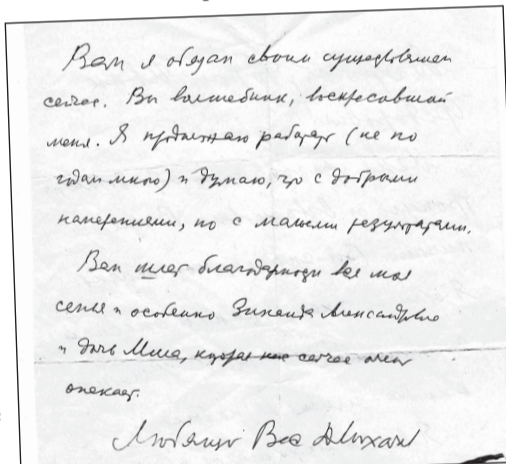 Вам я обязан своим существованием
сейчас. Вы волшебник, воскресивший
меня. Я продолжаю работать (не по
годам много) и думаю, что с добрыми
намерениями, но с малыми результатами.
Вам шлет благодарность вся моя
семья и особенно Зинаида Александровна
и дочь Мила, которая нас сейчас очень
опекает.
Любящий Вас